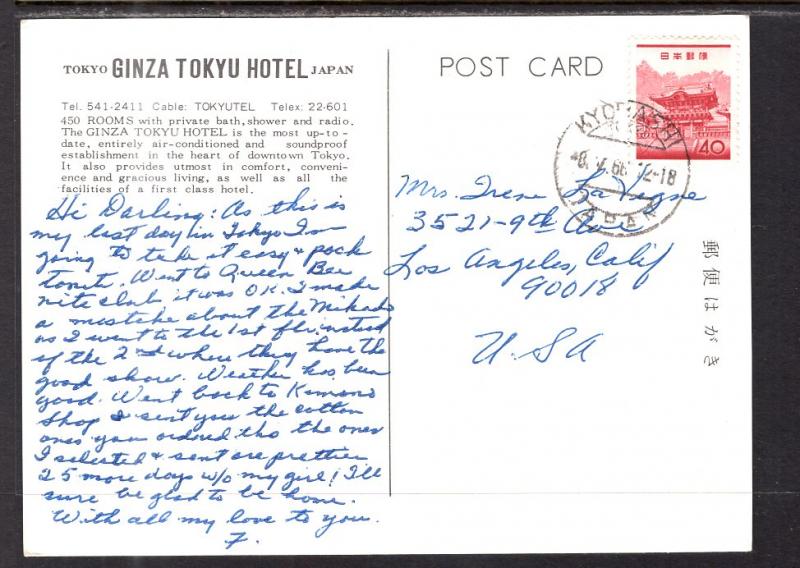 TOKYO GINZA TOKYU HOTEL JAPAN
Tel. 541-2411 Cable: TOKYUTEL Telex; 22-601
450 ROOMS with private bath, shower and radio.
The GINZA TOKYU HOTEL is the most up-to-
date, entirely air-conditioned and soundproof
establishment in the heart of downtown Tokyo.
It also provides utmost in comfort, conveni-
ence and gracious living, as well as all the
facilities of a first class hotel.
Hi Darling: As this is
my last day in Tokyo I'm
going to take it easy & pack
tonite. Went to Queen Bee
nite club it was OK. I make
a mistake about the Mikado
as I went to the 1st flr. instead
of the 2nd where they have the
good show. Weather has been
good. Went back to Kimono
Shop & sent you the cotton
ones you ordered tho the ones
I selected & sent are prettier
25 more days w/o my girl! I'll
sure be glad to be home.
With all my love to you.
7.
POST CARD
日本郵便
40
KYOBASHI
66 12-18
JAPAN
Mrs. Irene La Vigne
3521-9th Ave
Los Angeles, Calif
90018
U.S.A
郵便はがき